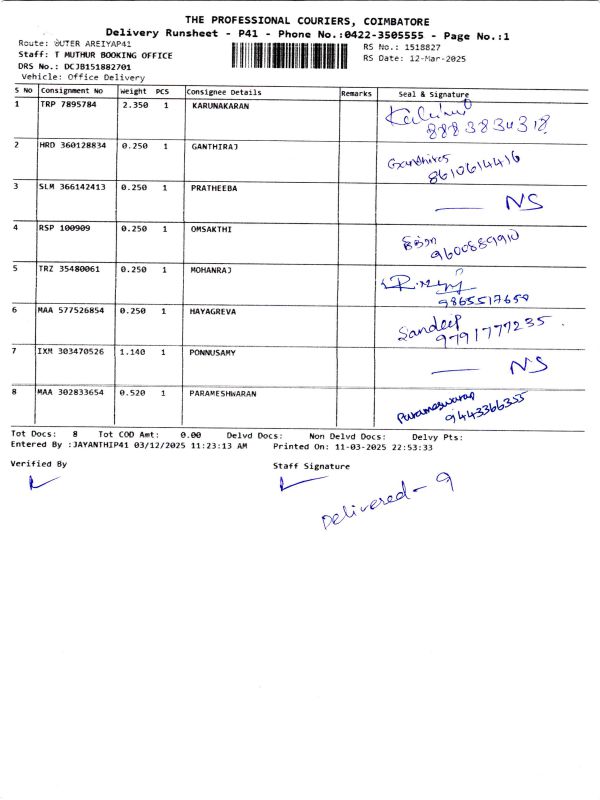 THE PROFESSIONAL COURIERS, COIMBATORE
Delivery Runsheet - P41 - Phone No.:0422-3505555 - Page No.:1
Route: OUTER AREIYAP41 RS No.: 1518827
Staff: T MUTHUR BOOKING OFFICE RS Date: 12-Mar-2025
DRS No.: DCJB151882701
Vehicle: Office Delivery
S No Consignment No Weight PCS Consignee Details Remarks Seal & Signature
1 TRP 7895784 2.350 1 KARUNAKARAN
8883834318
2 HRD 360128834 0.250 1 GANTHIRAJ
8610614416
3 SLM 366142413 0.250 1 PRATHEEBA — NS
4 RSP 100909 0.250 1 OMSAKTHI
9600889910
5 TRZ 35480061 0.250 1 MOHANRAJ
9865517650
6 MAA 577526854 0.250 1 HAYAGREVA Sandeep
9791777235
7 IXM 303470526 1.140 1 PONNUSAMY — NS
8 MAA 302833654 0.520 1 PARAMESHWARAN Parameswaran
9443366355
Tot Docs: 8 Tot COD Amt: 0.00 Delvd Docs: Non Delvd Docs: Delvy Pts:
Entered By :JAYANTHIP41 03/12/2025 11:23:13 AM Printed On: 11-03-2025 22:53:33
Verified By Staff Signature
Delivered - 9